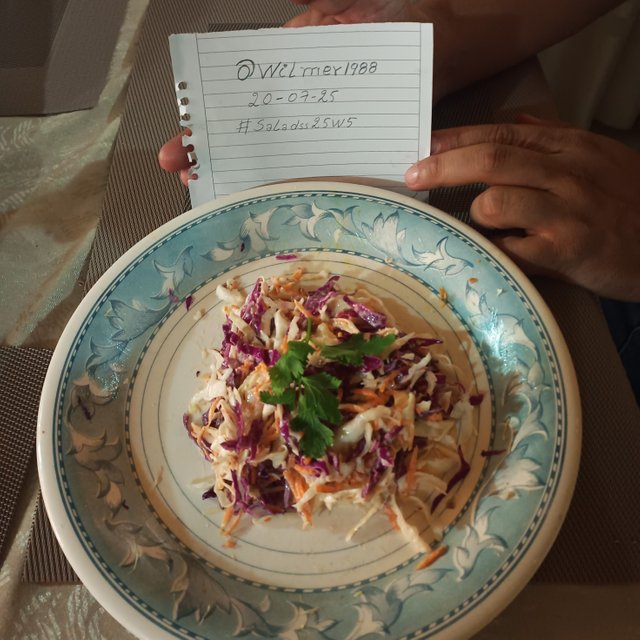 @Wilmer1988
20-07-25
#Saladss25w5